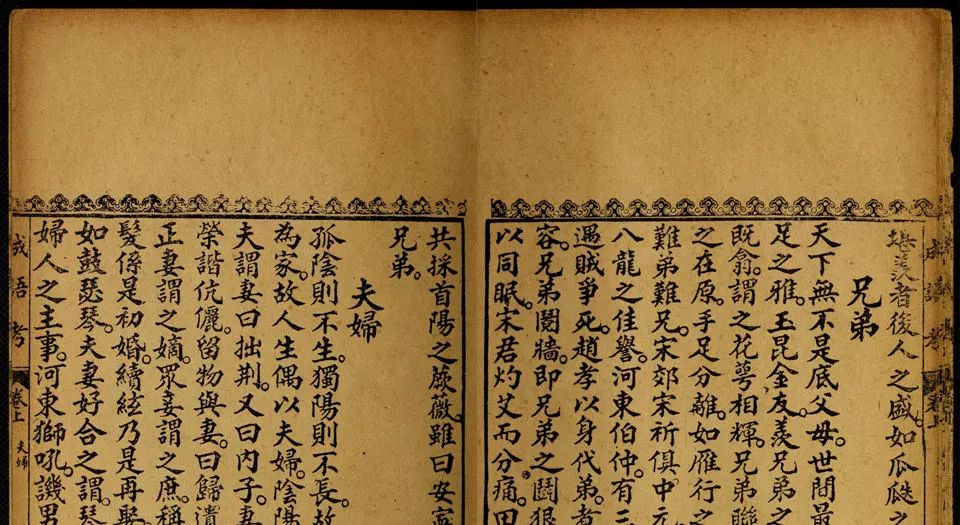 堪羨者後人之盛如瓜瓞之
兄弟
天下無不是底父母。世間最
足之雅。玉昆金友。羨兄弟之
既翕。謂之花萼相輝。兄弟聯
之在原。手足分離。如雁行之
難弟難兄。宋郊宋祈俱中元
八龍之佳譽。河東伯仲。有三
遇賊爭死。趙孝以身代弟。者
容。兄弟鬩牆。即兄弟之鬬狠
以同眠。宋君灼艾而分痛。田
共採首陽之蕨薇。雖曰安寧
兄弟。
夫婦
孤陰則不生。獨陽則不長。故
為家。故人生偶以夫婦。陰陽
夫謂妻曰拙荆。又曰内子。妻
榮諧伉儷。留物與妻。曰歸遺
正妻謂之嫡。眾妾謂之庶。稱
髮係是初婚。續絃乃是再娶
如鼓瑟琴。夫妻好合之謂。琴
婦人之主事。河東獅吼。譏男
成語考
卷上
夫婦